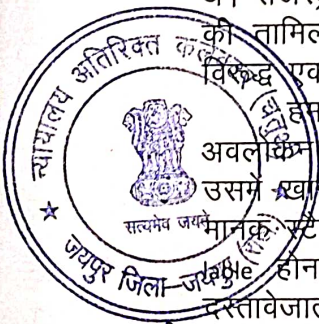 की तामिल
विरूद्ध एव
हम
अवलोकन
उसमें खा
मानक स्टे
lable होन
दस्तावेजात
न्यायालय अतिरिक्त कलेक्टर (चतुर्थ)
सत्यमेव जयते
जयपुर जिला-जयपुर (राज.)